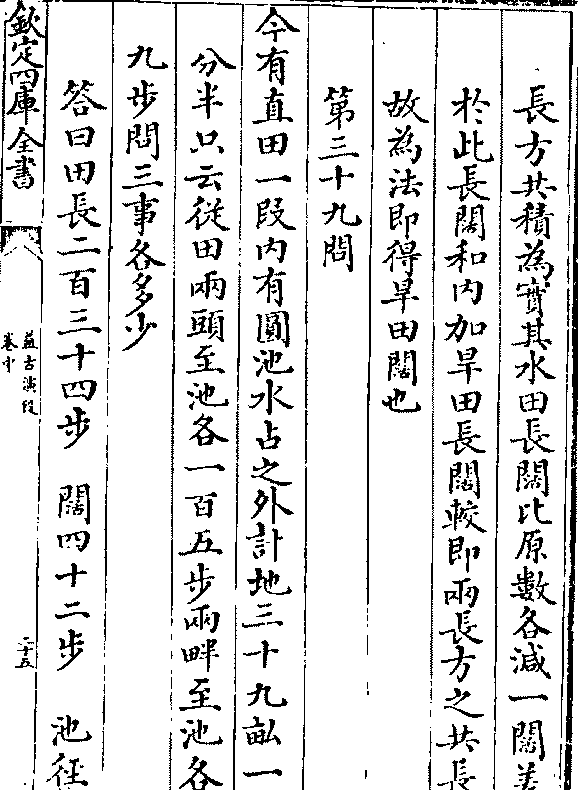 長方共積為實其水田長闊比原數各減一闊差
於此長闊和内加旱田長闊較即兩長方之共長
故為法即得旱田闊也
第三十九問
今有直田一段内有圓池水占之外計地三十九畝一
分半只云從田兩頭至池各一百五步兩畔至池各
九步問三事各多少
答曰田長二百三十四步 闊四十二步 池徑
欽定四庫全書
益古演段
卷中
二十五